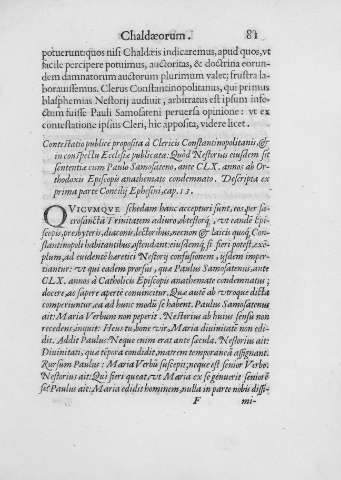 Chaldæorum. 81
potuerunt: quos nisi Chaldæis indicaremus, apud quos, vt
facile percipere potuimus, auctoritas, & doctrina eorun-
dem damnatorum auctorum plurimum valet; frustra la-
borauissemus. Clerus Constantinopolitanus, qui primus
blasphemias Nestorij audiuit, arbitratus est ipsum infe-
ctum fuisse Pauli Samosateni peruersa opinione: vt ex
contestatione ipsius Cleri, hic apposita, videre licet.
Contestatio publicè proposita à Clericis Constantinopolitanis, &
in conspectu Ecclesiæ publicata: Quòd Nestorius eiusdem sit
sententiæ cum Paulo Samosateno, ante CLX. annos ab Or-
thodoxis Episcopis anathemate condemnato. Descripta ex
prima parte Concilij Ephesini, cap. 13.
QVICVMQVE schedam hanc acceperit suus, eos, per sa-
crosanctã Trinitatem adiuro, obtestorq́, vt eandẽ Epi-
scopis, presbyteris, diaconis, lectoribus, necnon & laicis quoq́, Con-
stantinopoli habitantibus, ostendant: eiusdemq́, si fieri potest, exẽ-
plum, ad euidentẽ hæretici Nestorij confusionem, ijsdem imper-
tiantur: vt qui eadem prorsus, qua Paulus Samosatenus, ante
CLX. annos à Catholicis Episcopis anathemate condemnatus;
docere, ac sapere apertè conuincitur. Quæ autẽ ab vtroque dicta
comperiuntur, ea ad hunc modũ se habent. Paulus Samosatenus
ait: Maria Verbum non peperit. Nestorius ab huius sensu non
recedens, inquit: Heus tu, bone vir, Maria diuinitatẽ non edi-
dit. Addit Paulus: Neque enim erat ante sæcula. Nestorius ait:
Diuinitati, quæ tẽpora condidit, matrem temporaneã assignant.
Rursum Paulus: Maria Verbũ suscepit; neque est senior Verbo.
Nestorius ait: Quî fieri queat, vt Maria ex se genuerit seniorẽ
se? Paulus ait: Maria edidit hominem, nulla in parte nobis dissi-
F mi-